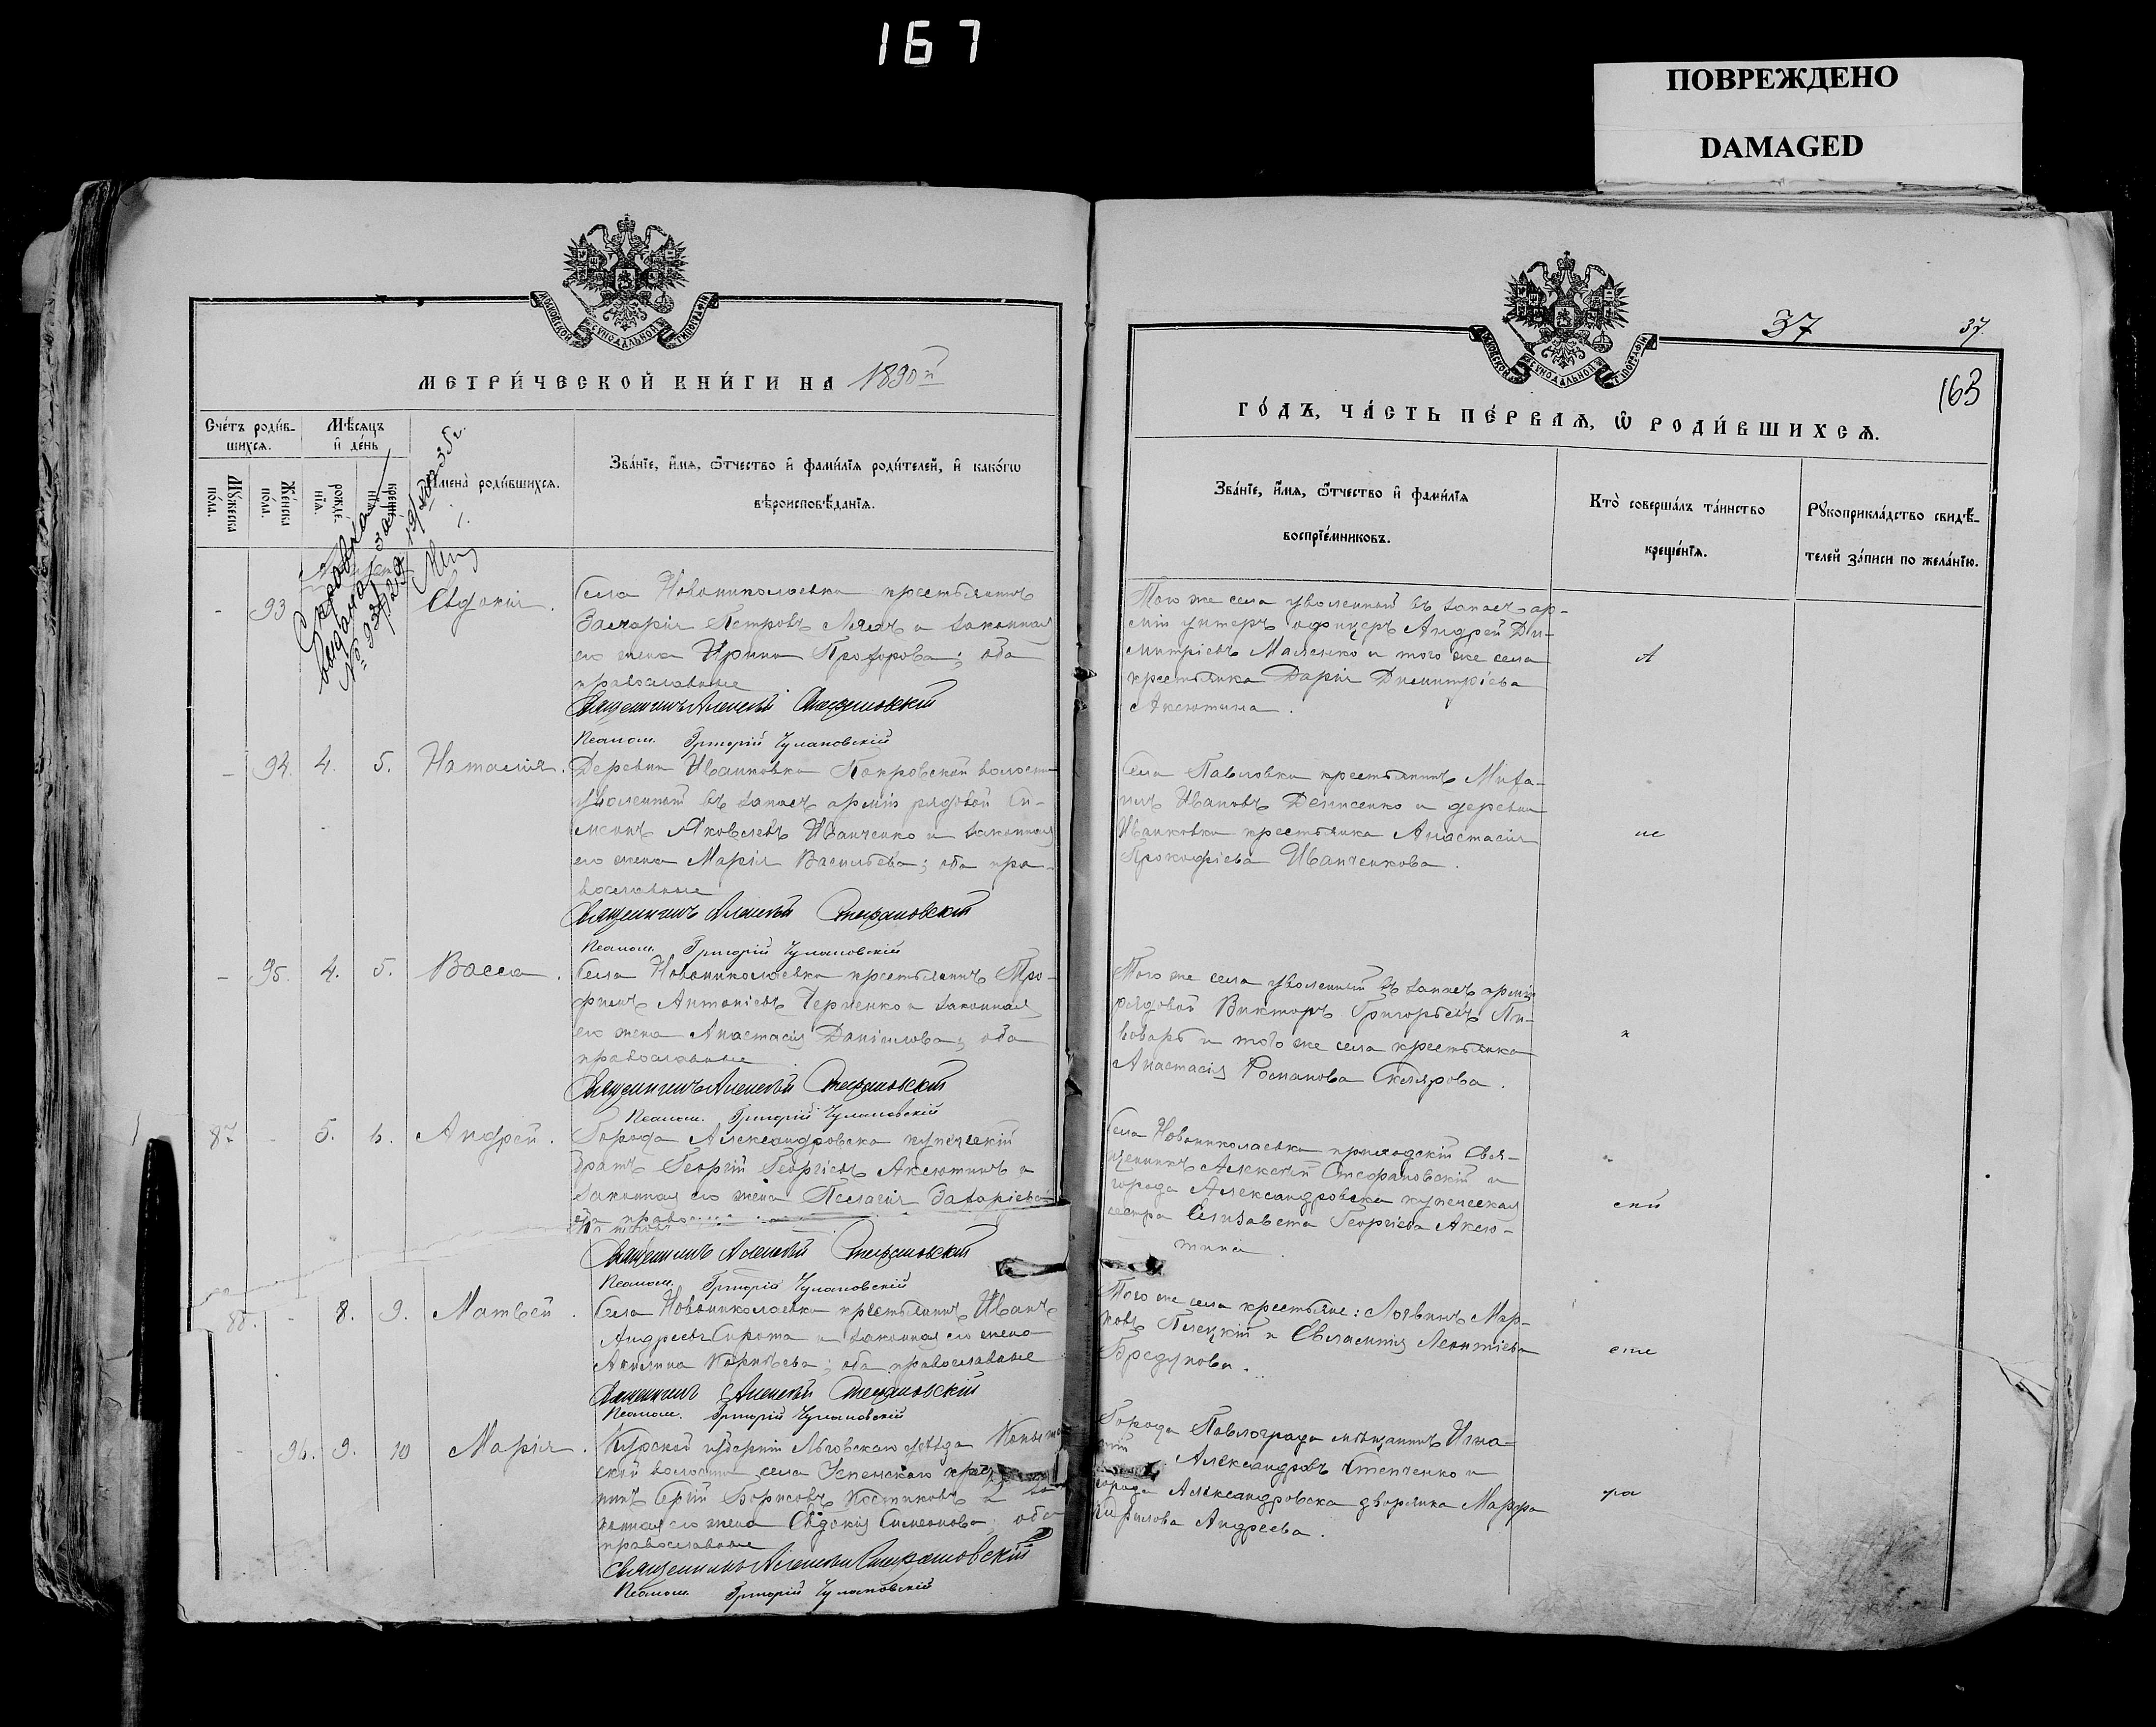 167
ПОВРЕЖДЕНО
DAMAGED
МОСКОВСКОЙ СѴНОДАЛЬНОЙ ТИПОГРАФІИ
МЕТРИ́ЧЕСКОЙ КНИ́ГИ НА 1890й
Сче́тъ роди́в-
шихсѧ.
Мѣ́сѧцъ
и҆ де́нь
Мꙋ́жеска
по́ла.
Же́нска
по́ла.
рожде-
нїѧ.
креще-
нїѧ.
И҆мена̀ роди́вшихсѧ.
Зва́нїе, и҆́мѧ, ѻ҆́тчество и҆ фами́лїѧ роди́телей, и҆ како́гѡ
вѣроисповѣ́данїѧ.
Справка
выдана за
№
- 93 Евдокія.
Села Новониколаевка крестьянинъ
Захарія Петровъ и законная
его жена Ирина Прохорова; оба
православные
Священникъ Алексѣй Стефановскій
Псалом. Григорій Чулановскій
- 94. 4. 5. Наталія.
Деревни Иванковка Покровской волости
уволенный въ запасъ арміи рядовой Си-
меонъ Яковлевъ Иванченко и законная
его жена Марія Васильева; оба пра-
вославные
Священникъ Алексѣй Стефановскій
Псалом. Григорій Чулановскій
- 95. 4. 5. Васса.
Села Новониколаевка крестьянинъ Тро-
фимъ Антоніевъ Черненко и законная
его жена Анастасія Даніилова; оба
православные
Священникъ Алексѣй Стефановскій
Псалом. Григорій Чулановскій
87 - 5. 6. Андрей.
Города Александровска купеческій
братъ Георгій Георгіевъ Аксютинъ и
законная его жена Пелагія Захаріева
Священникъ Алексѣй Стефановскій
Псалом. Григорій Чулановскій
88. - 8. 9. Матвей.
Села Новониколаевка крестьянинъ Иванъ
Андреевъ Сирота и законная его жена
Акилина Корніева; оба православные
Священникъ Алексѣй Стефановскій
Псалом. Григорій Чулановскій
- 96. 9. 10 Марія.
Курской губерніи Льговскаго уѣзда
ской волости села Успенскаго
нинъ Сергій Борисовъ Костиковъ
конная его жена Евдокія Симеонова; оба
православные
Священникъ Алексѣй Стефановскій
Псалом. Григорій Чулановскій
МОСКОВСКОЙ СѴНОДАЛЬНОЙ ТИПОГРАФІИ
37 37.
163
ГО́ДЪ, ЧА́СТЬ ПЕ́РВАѦ, Ѡ҆ РОДИ́ВШИХСѦ.
Зва́нїе, и҆́мѧ, ѻ҆́тчество и҆ фами́лїѧ
воспрїе́мниковъ.
Кто̀ соверша́лъ та́инство
креще́нїѧ.
Рꙋкоприкла́дство свидѣ́-
телей за́писи по жела́нїю.
Того же села уволенный въ запасъ ар-
міи унтеръ офицеръ Андрей Ди-
митріевъ Маленко и того же села
крестьянка Дарія Димитріева
Аксютина.
А
Села Павловки крестьянинъ Миха-
илъ Ивановъ Денисенко и деревни
Иванковки крестьянка Анастасія
Прокофіева Иванченкова.
Того же села уволенный въ запасъ арміи
рядовой Викторъ Григорьевъ Пи-
воваръ и того же села крестьянка
Анастасія Романова Склярова.
Села Новониколаевка приходскій Свя-
щенникъ Алексѣй Стефановскій и
города Александровска купеческая
сестра Елизавета Георгіева Аксю-
тина.
Того же села крестьяне: Логвинъ Мар-
ковъ Плецкій и Евлампія Леонтіева
Бредунова.
Города Павлограда мѣщанинъ Игна-
тій Александровъ Степченко и
города Александровска дворянка Марфа
Кирилова Андреева.